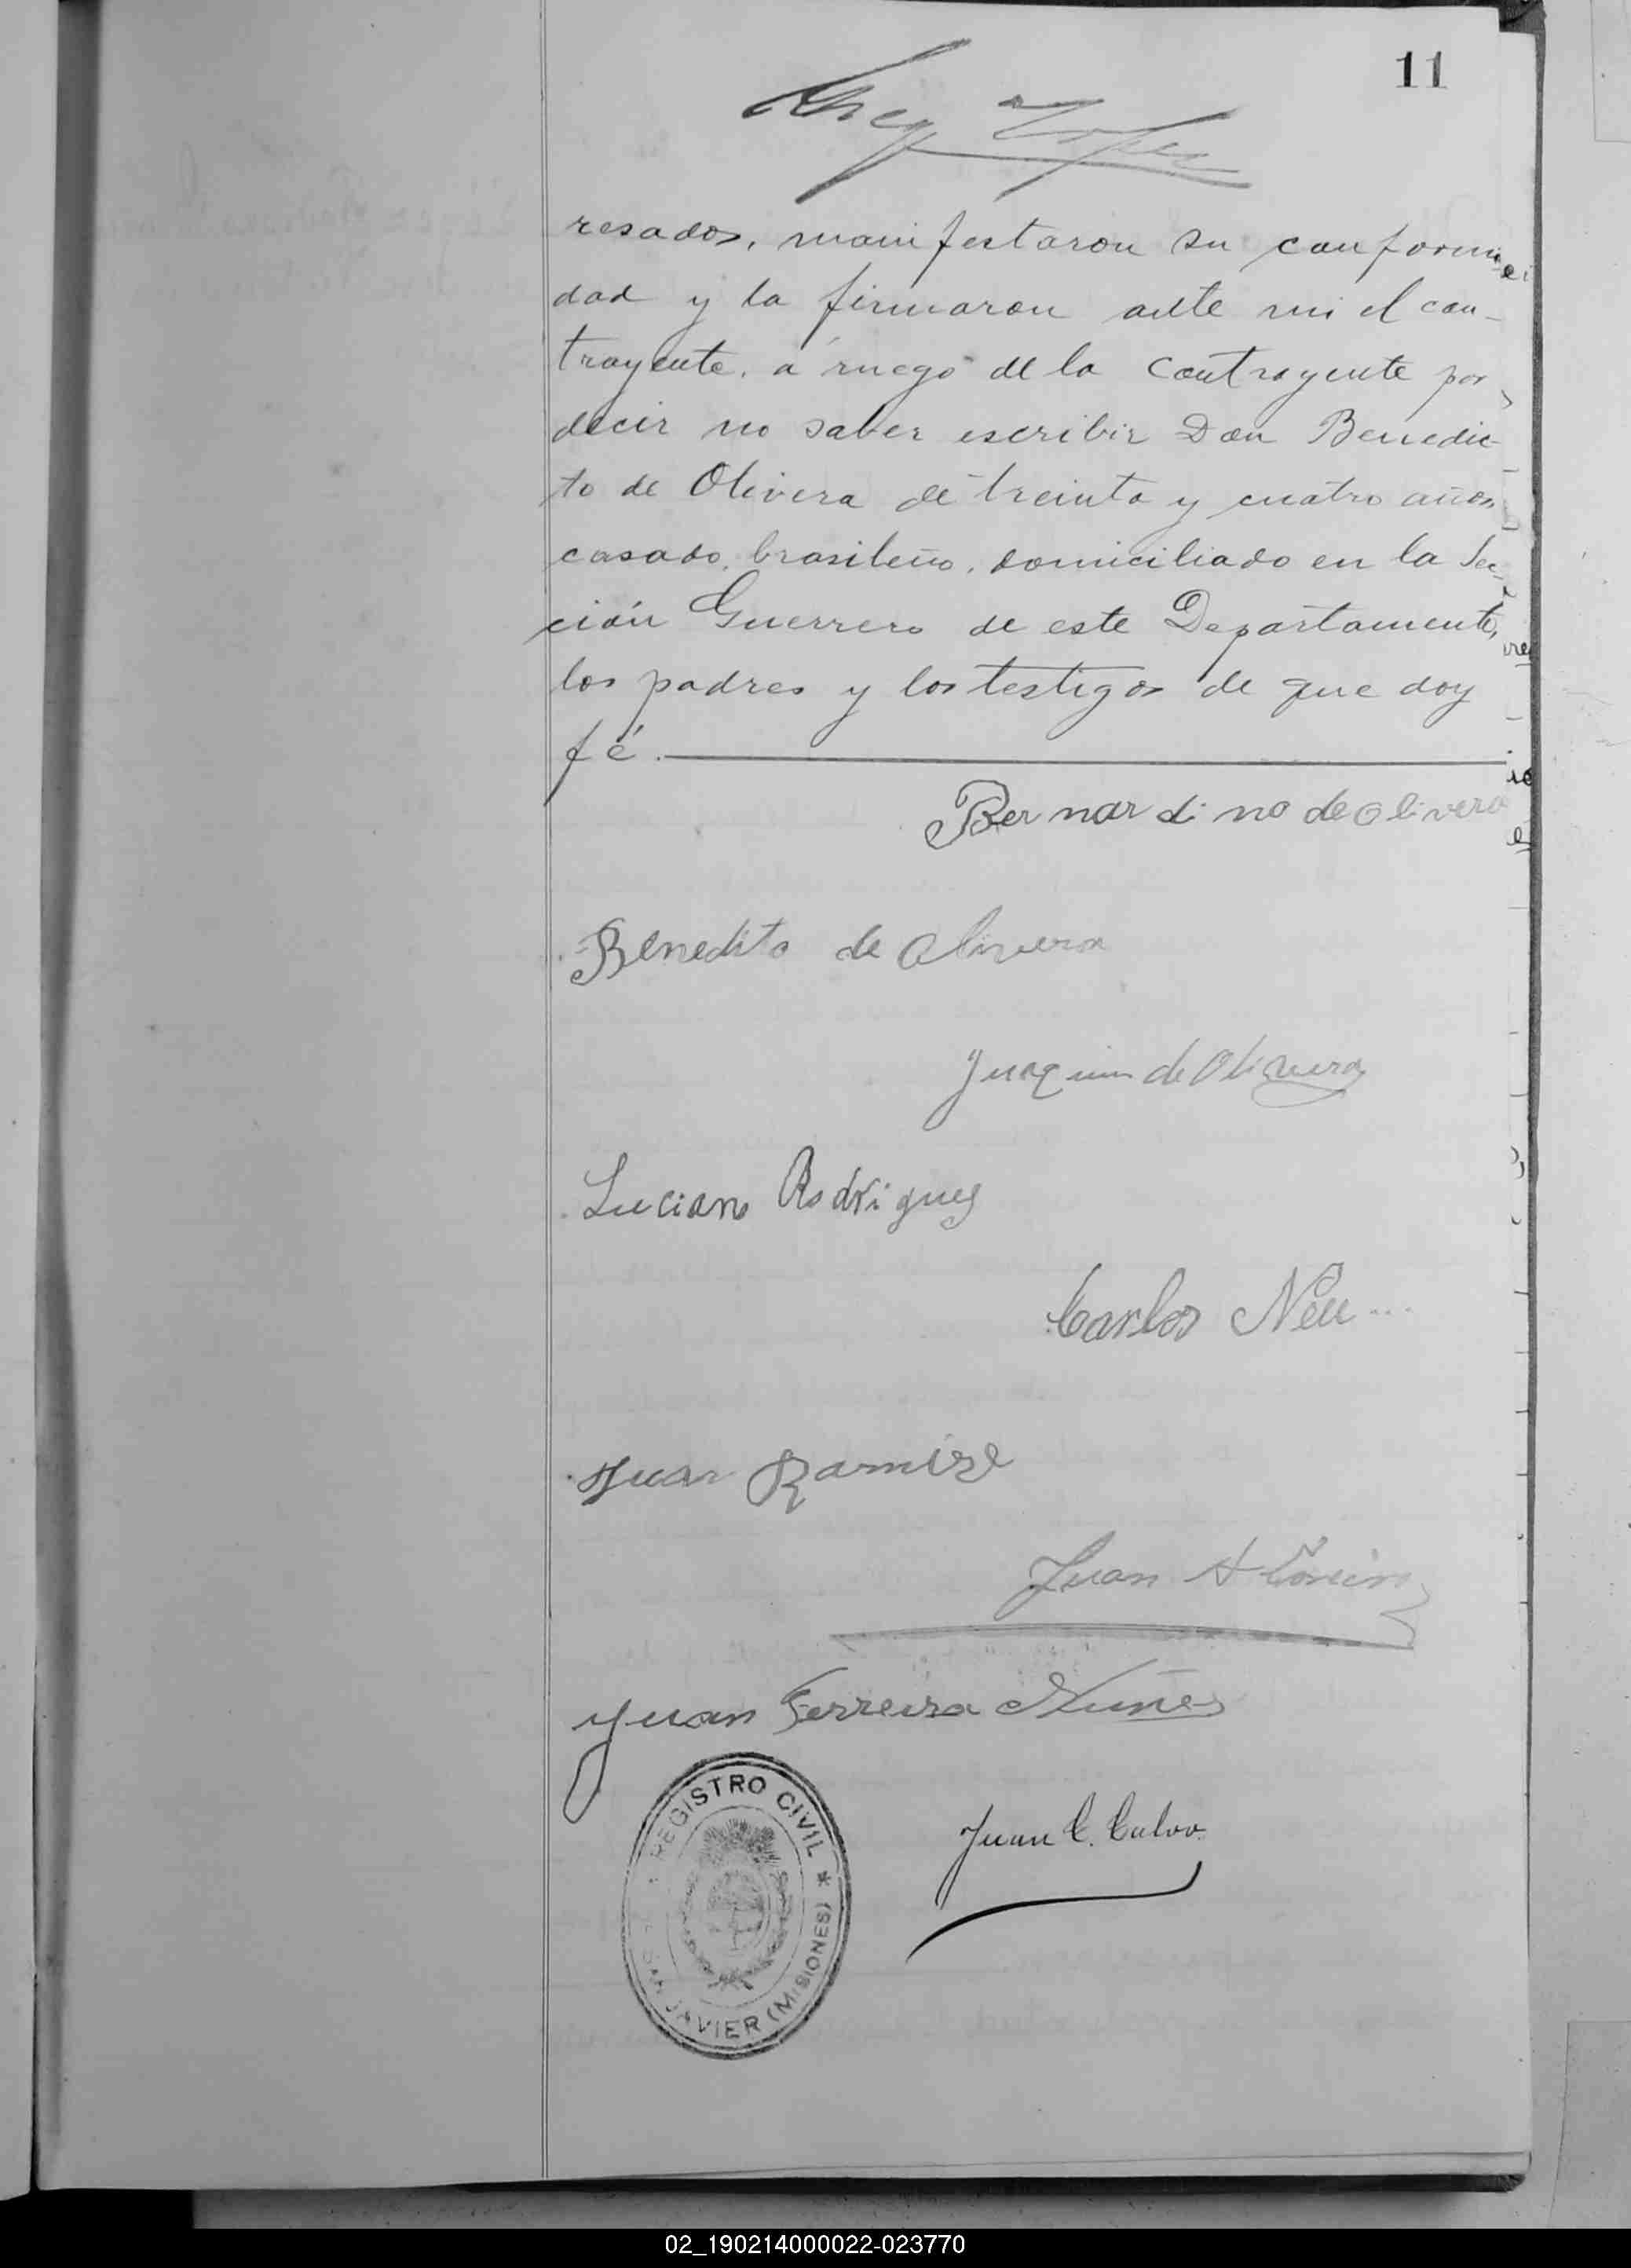 11
resados, manifestaron su conformi
dad y la firmaron ante mi el con-
trayente, a ruego de la contrayente por
decir no saber escribir Don Benedic-
to de Olivera de treinta y cuatro años,
casado, brasileño, domiciliado en la Sec-
ción Guerrero de este Departamento,
los padres y los testigos de que doy
fé.
Bernardino de Olivera
Benedito de Olivera
Juaquin de Olivera
Luciano Rodriguez
Carlos Neu
Juan Ramirez
Juan A
Juan Ferreira Nuñes
Juan C. Calvo.
REGISTRO CIVIL *
SAN JAVIER (MISIONES)
02_190214000022-023770